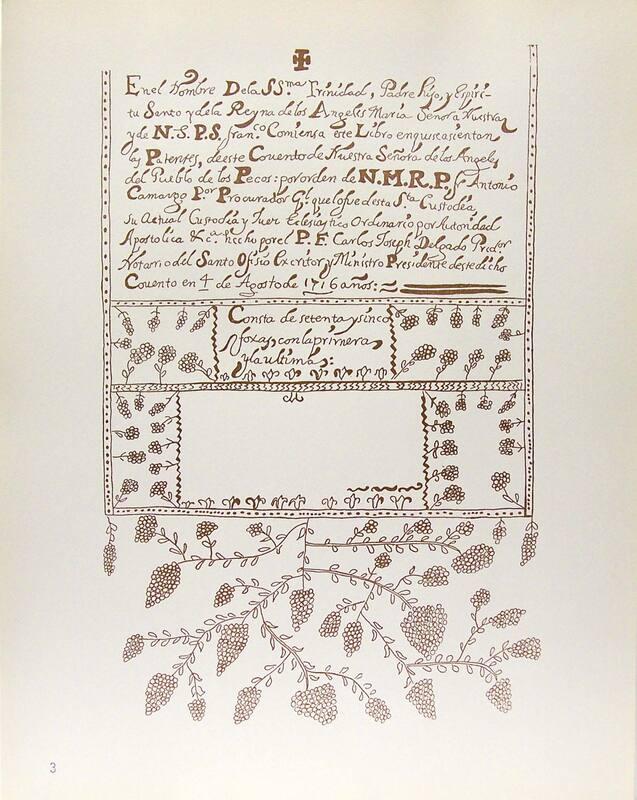 En el Nombre De la SS.ma Trinidad, Padre hijo, y Espiri-
tu Santo y de la Reyna de los Angeles Maria Señora Nuestra
y de N.S.P.S. fran.co Comiensa este Libro en que se asientan
las Patentes, de este Covento de Nuestra Señora de los Angeles
del Pueblo de los Pecos: por orden de N.M.R.P. fr Antonio
Camargo P.or Procurador G.l que lo fue de esta S.ta Custodia
su Actual Custodia y Juez Eclesiastico Ordinario por Autoridad
Apostolica &c.a hecho por el P. F. Carlos Joseph Delgado Predor
Notario del Santo Ofisio Excritor y Ministro Presidente deste dicho
Covento en 4 de Agosto de 1716 años:
Consta de setenta y sinco
foxas, con la primera,
y la ultima:
3